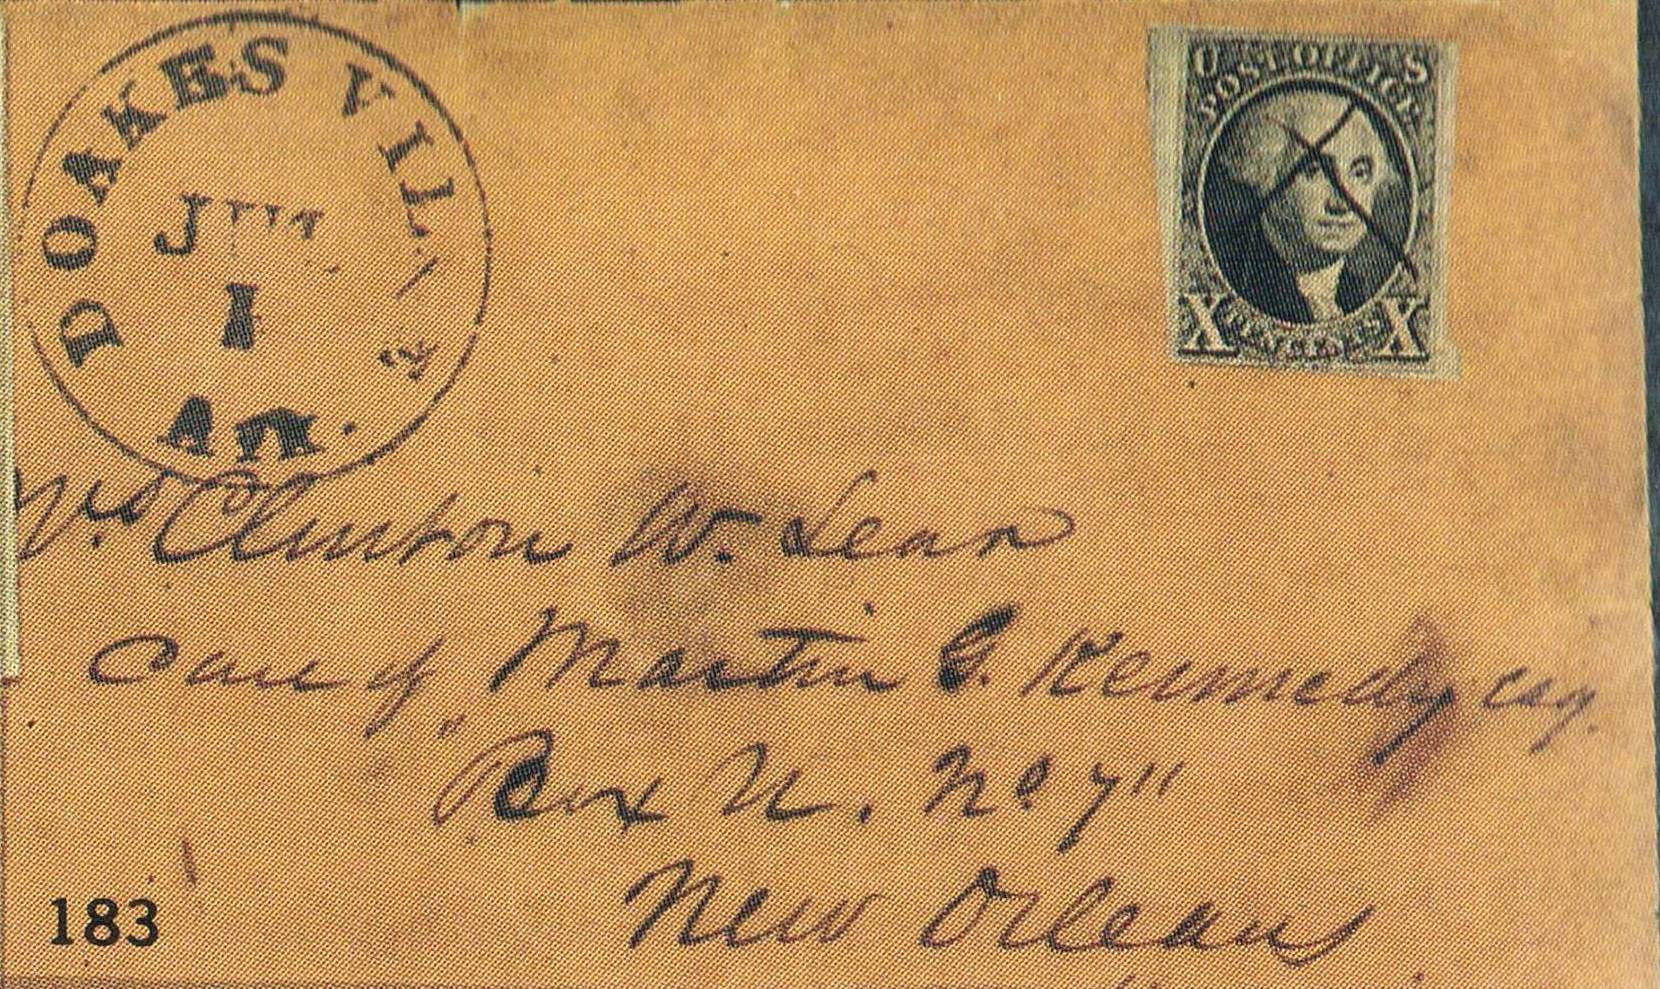 DOAKESVILLE
JUL
1
Ark.
U S
POST OFFICE
X TEN CENTS X
Clinton W. Lear
Care of Martin G. Kennedy esq.
"Box N. No 7"
New Orleans
183